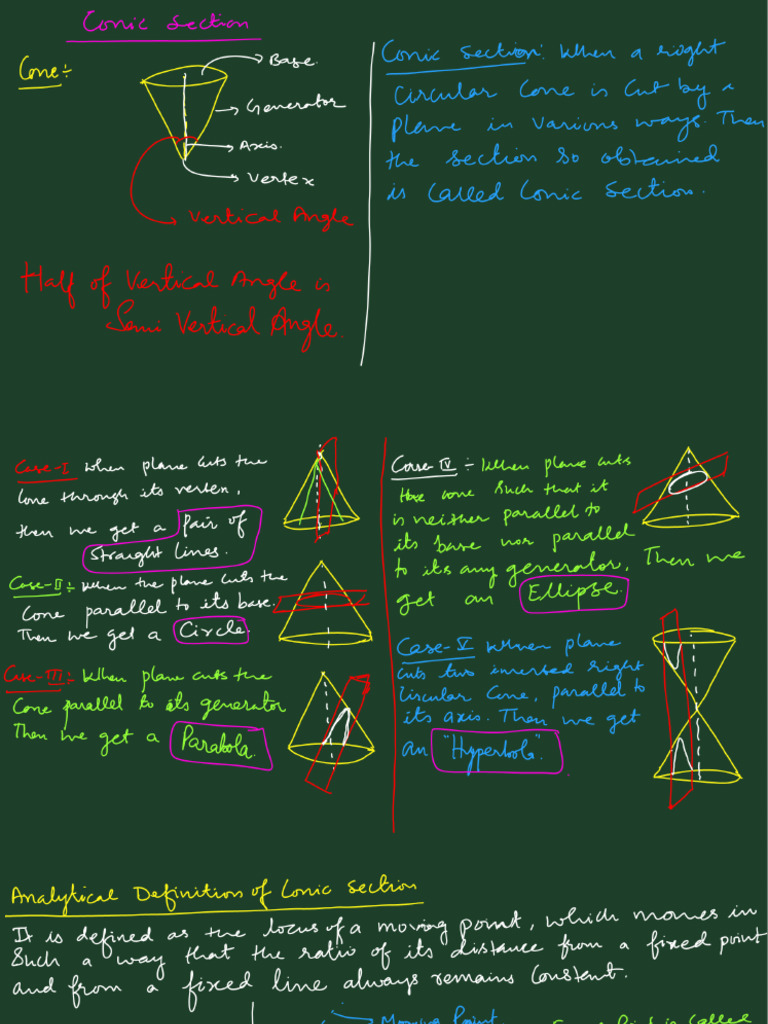 Conic Section
Cone:-
Base.
Generator
Axis.
Vertex
Vertical Angle
Half of Vertical Angle is
Semi Vertical Angle.
Conic Section: When a right
Circular Cone is Cut by a
plane in various ways. Then
the section so obtained
is Called Conic Section.
Case-I When plane Cuts the
Cone through its vertex,
then we get a Pair of
Straight Lines.
Case-II:- When the plane Cuts the
Cone parallel to its base.
Then we get a Circle.
Case-III:- When plane Cuts the
Cone parallel to its generator
Then we get a Parabola.
Case-IV:- When plane Cuts
the cone Such that it
is neither parallel to
its base nor parallel
to its any generator, Then we
get an Ellipse.
Case-V When plane
Cuts two inversed right
Circular Cone, parallel to
its axis. Then we get
an "Hyperbola".
Analytical Definition of Conic Section
It is defined as the locus of a moving point, which moves in
Such a way that the ratio of its distance from a fixed point
and from a fixed line always remains Constant.
Moving Point
Point is Called